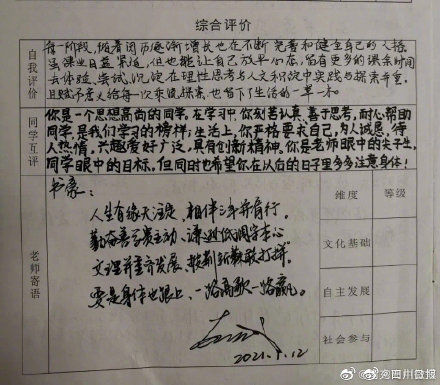 综合评价
自我评价
每一阶段,随着阅历逐渐增长也在不断完善和健全自己的人格
虽课业日益紧迫,但也能让自己放平心态,留有更多的课余时间
去体验、尝试,沉淀在理性思考与人文积淀中实践与探索并重,
且赋予意义给每一次交流探索,也留下了生活的一串一木
同学互评
你是一个思想高尚的同学,在学习中,你刻苦认真、善于思考,耐心帮助
同学,是我们学习的榜样;生活上,你严格要求自己,为人诚恳,待
人热情,兴趣爱好广泛,具有创新精神。你是老师眼中的尖子生,
同学眼中的目标,但同时也希望你在以后的日子里多多注意身体!
老师寄语
书豪:
人生有缘天注定,相伴三年并肩行。
勤奋善学贵主动,谦逊低调守本心
文理并重齐发展,敢打
要是身体也跟上,一路高歌一路赢。
2021.5.12
维度
等级
文化基础
自主发展
社会参与
@四川微报